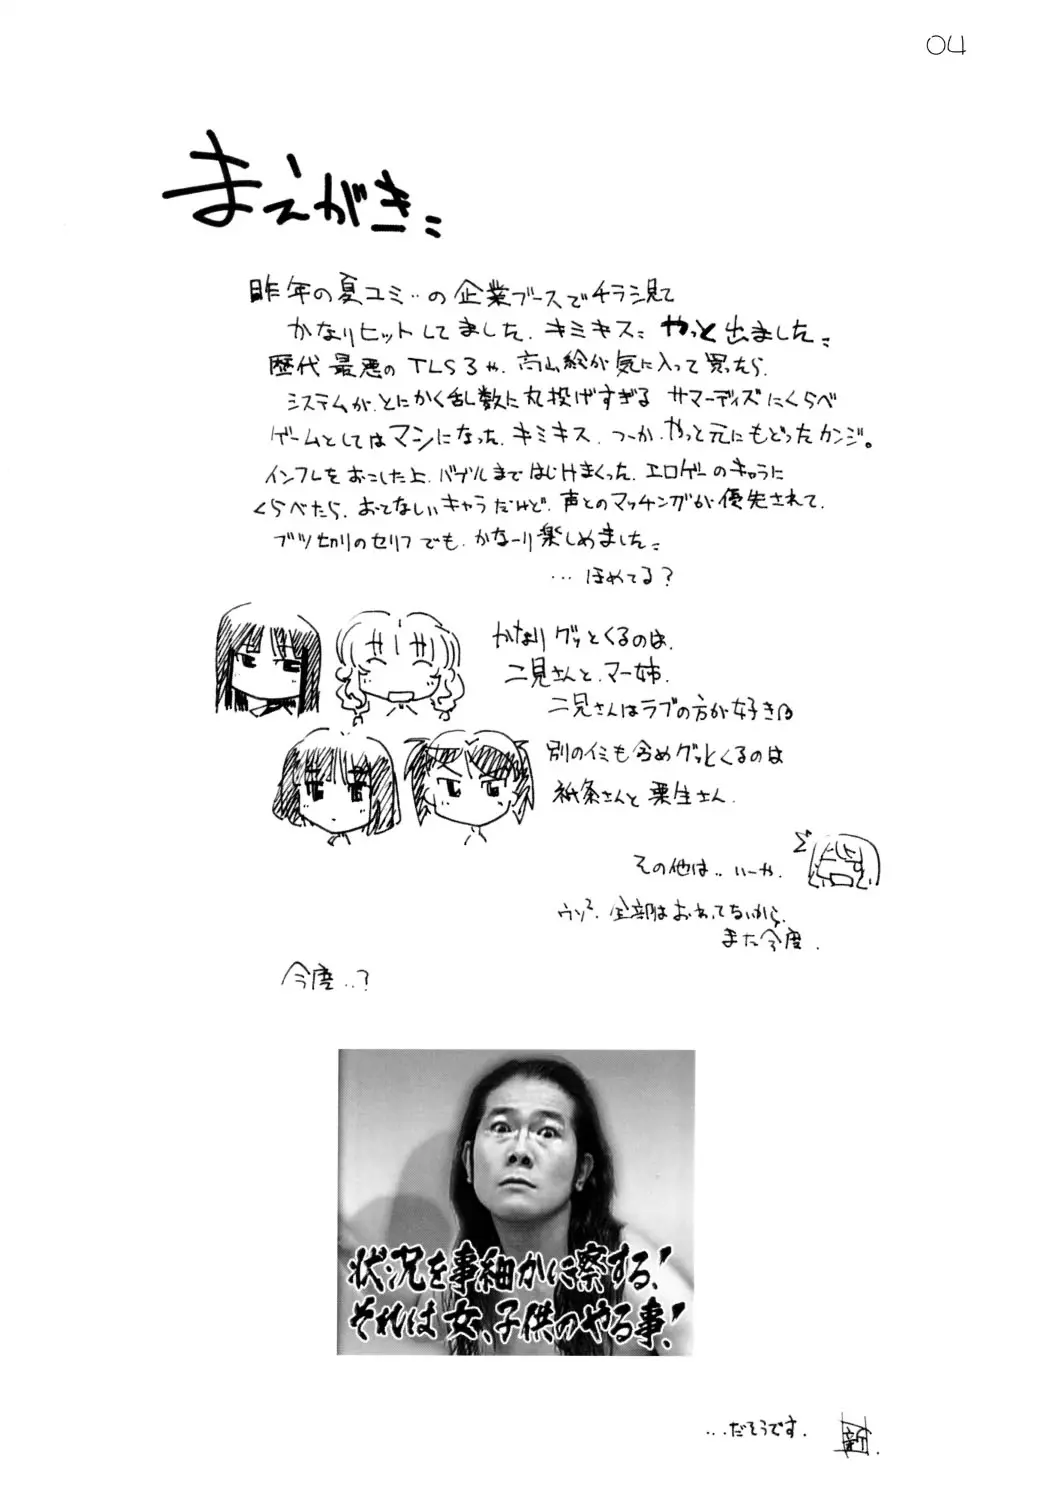 04
まえがき
昨年の夏コミ‥の企業ブースでチラシ見て
かなりヒットしてました. キミキス やっと出ました
歴代最悪のTLS3や, 高山絵が気に入って買ったら,
システムが, とにかく乱数に丸投げすぎる サマーデイズにくらべ
ゲームとしてはマシになった, キミキス, つーか, やっと元にもどったカンジ。
インフレをおこした上, バグルまではじけまくった, エロゲーのキャラに
くらべたら, おとなしいキャラだけど, 声とのマッチングが優先されて,
ブツ切りのセリフでも, かなーり楽しめました
…ほめてる?
かなりグッとくるのは,
二見さんと, マー姉.
二見さんはラブの方が好き
別のイミも含めグッとくるのは
祇条さんと 栗生さん.
その他は‥いーや.
ウソ². 全部はおわってないから,
また今度.
今度‥?
状況を事細かに察する!
それは女、子供のやる事!
…だそうです. 新.